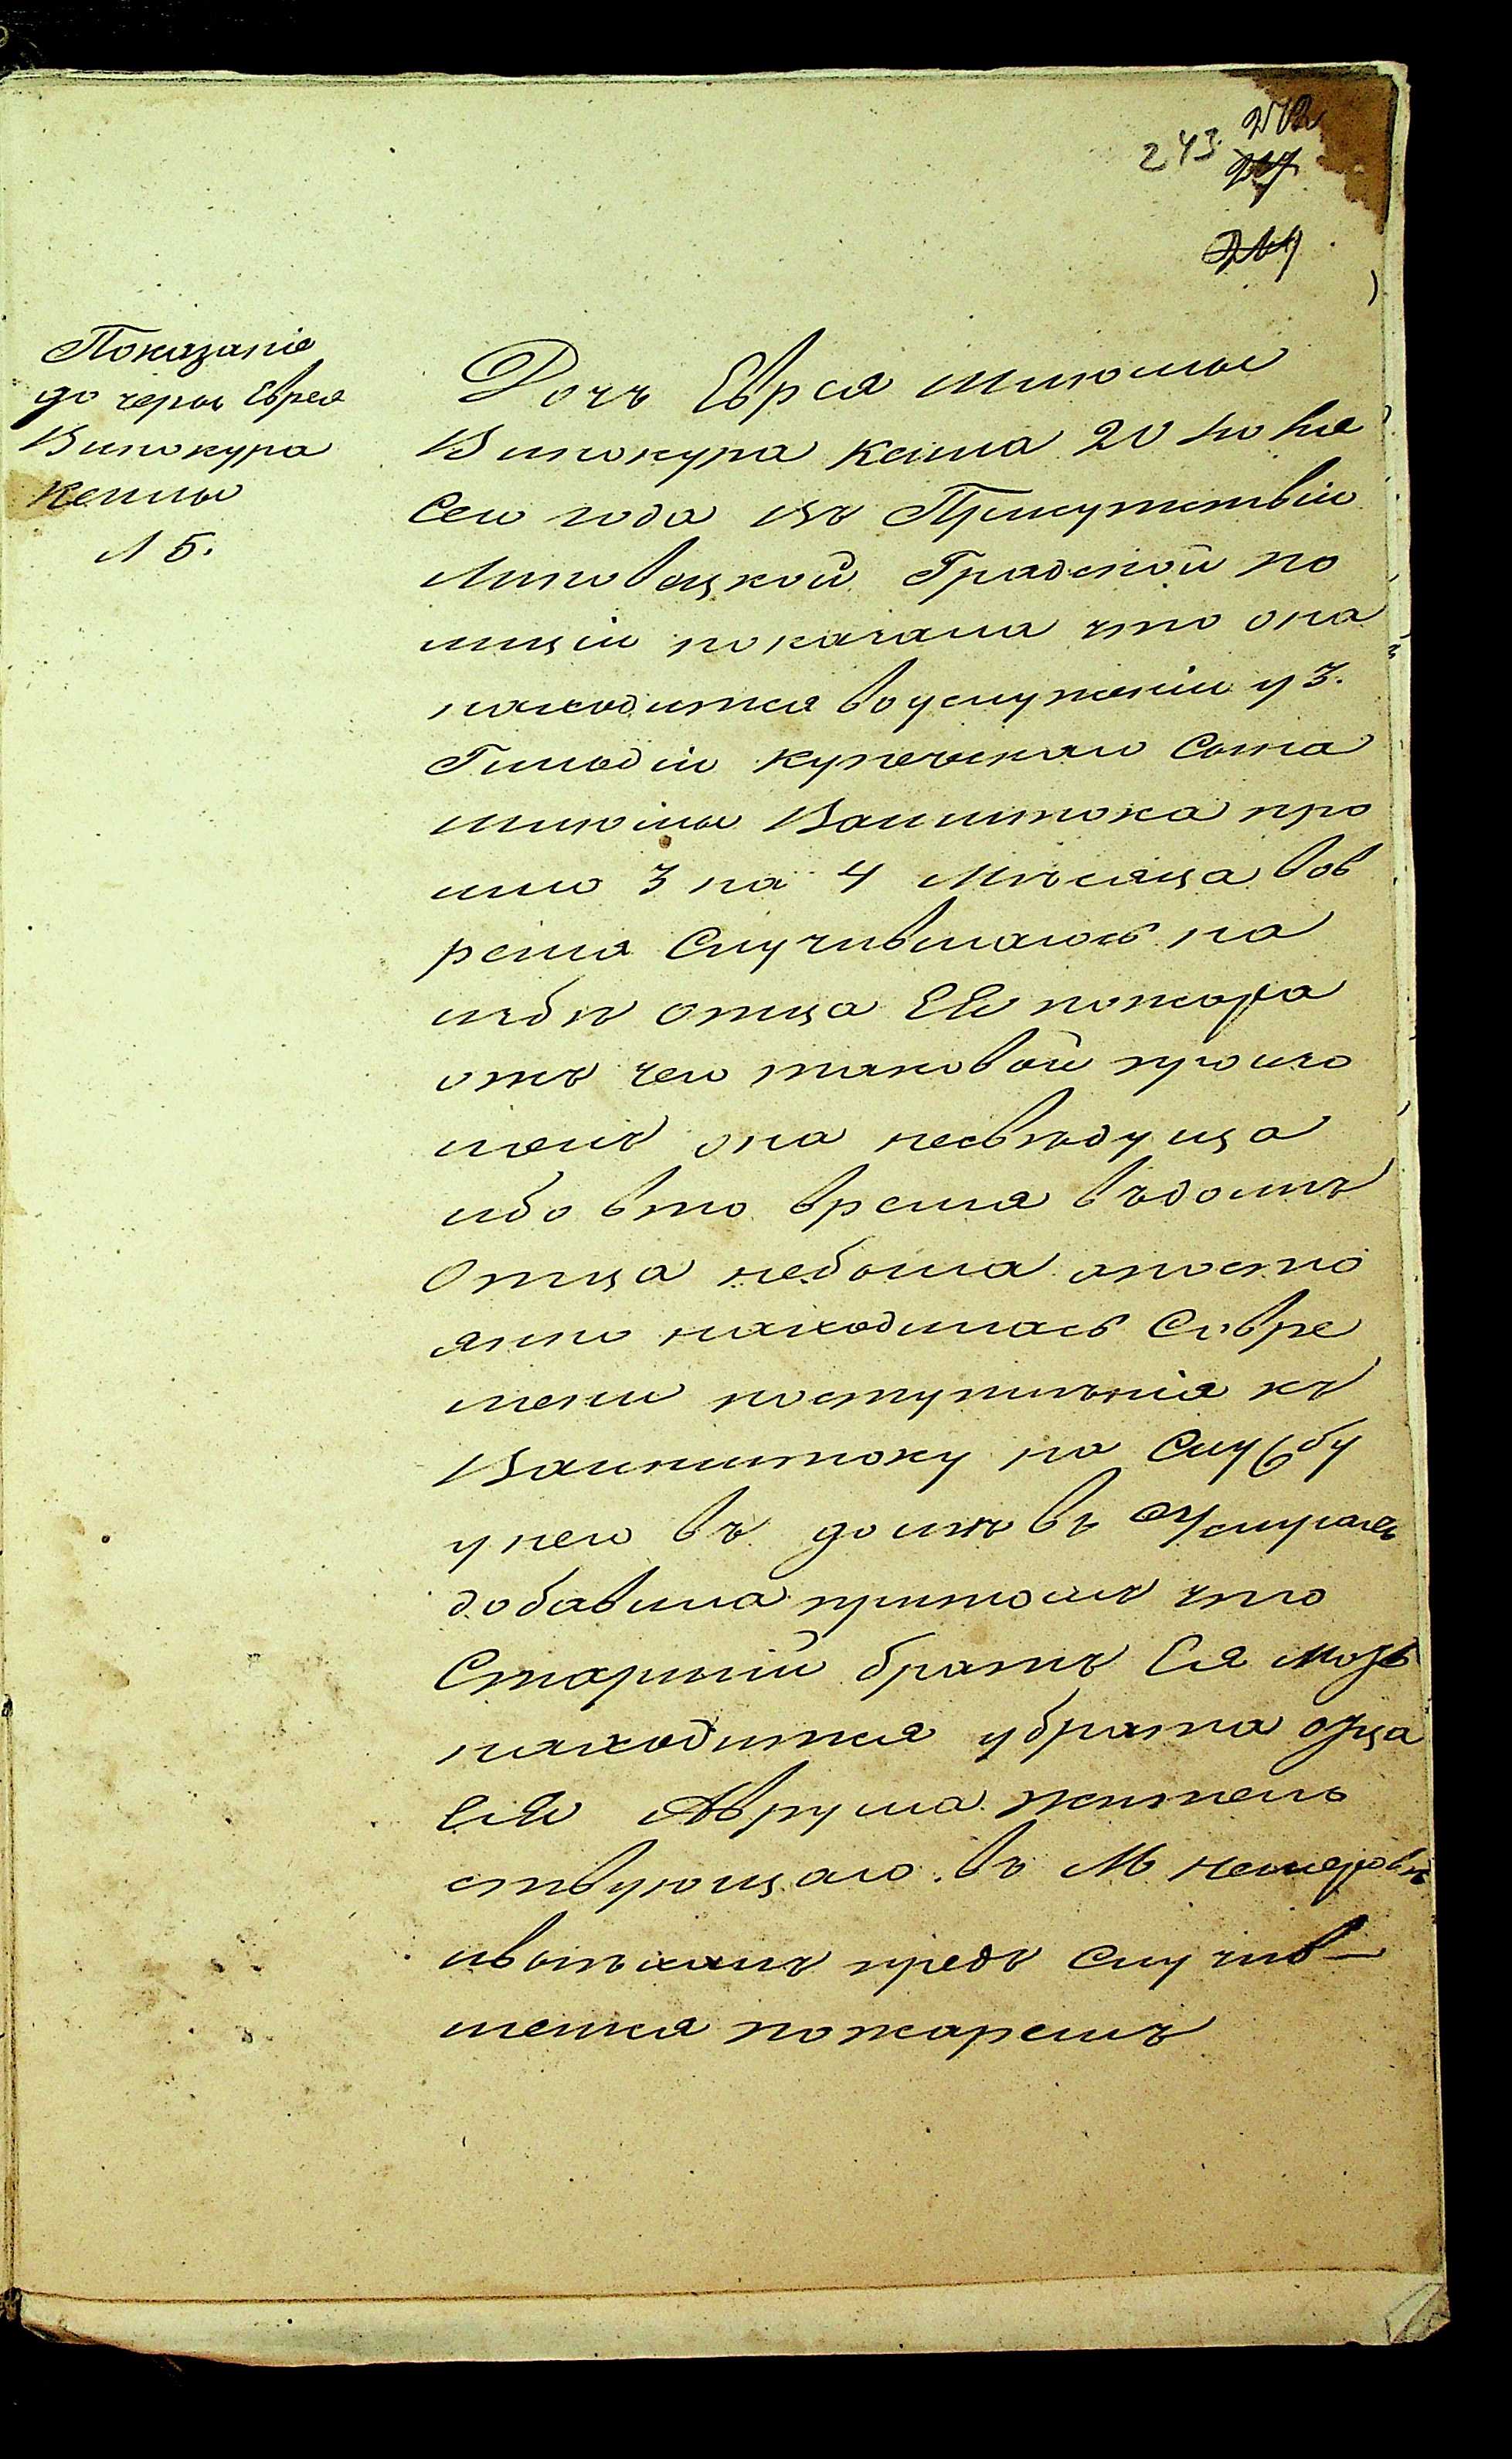 243
Показаніе
дочеры Еврея
Винокура
Кеилы
Л 5.
Дочъ Еврея Шліомы
Винокура Кеила 20 Іюня
Сего года въ Присутствіи
Липовецкой Градской по
лиціи показала что она
находится воуслуженіи у 3.
Гилодіи купеческаго Сына
шліомы Ваинштока про
шло 3 на 4 Мѣсяца вов
ремя Случившагось на
избѣ отца Ея пожара
отъ чего таковой произо
шелъ она несвѣдуща
ибо вто время въдомѣ
Отца небыла апосто
янно находилась Совре
мени поступлѣнія къ
Ваинштоку на Службу
унего въ домѣ въ Услугахъ
добавила притомъ что
Старшій братъ Ея
находится убрата отца
Ея Аврума жытель
ствующаго въ М. Немеровѣ
ивыѣхалъ предъ Случив-
шемся пожаремъ